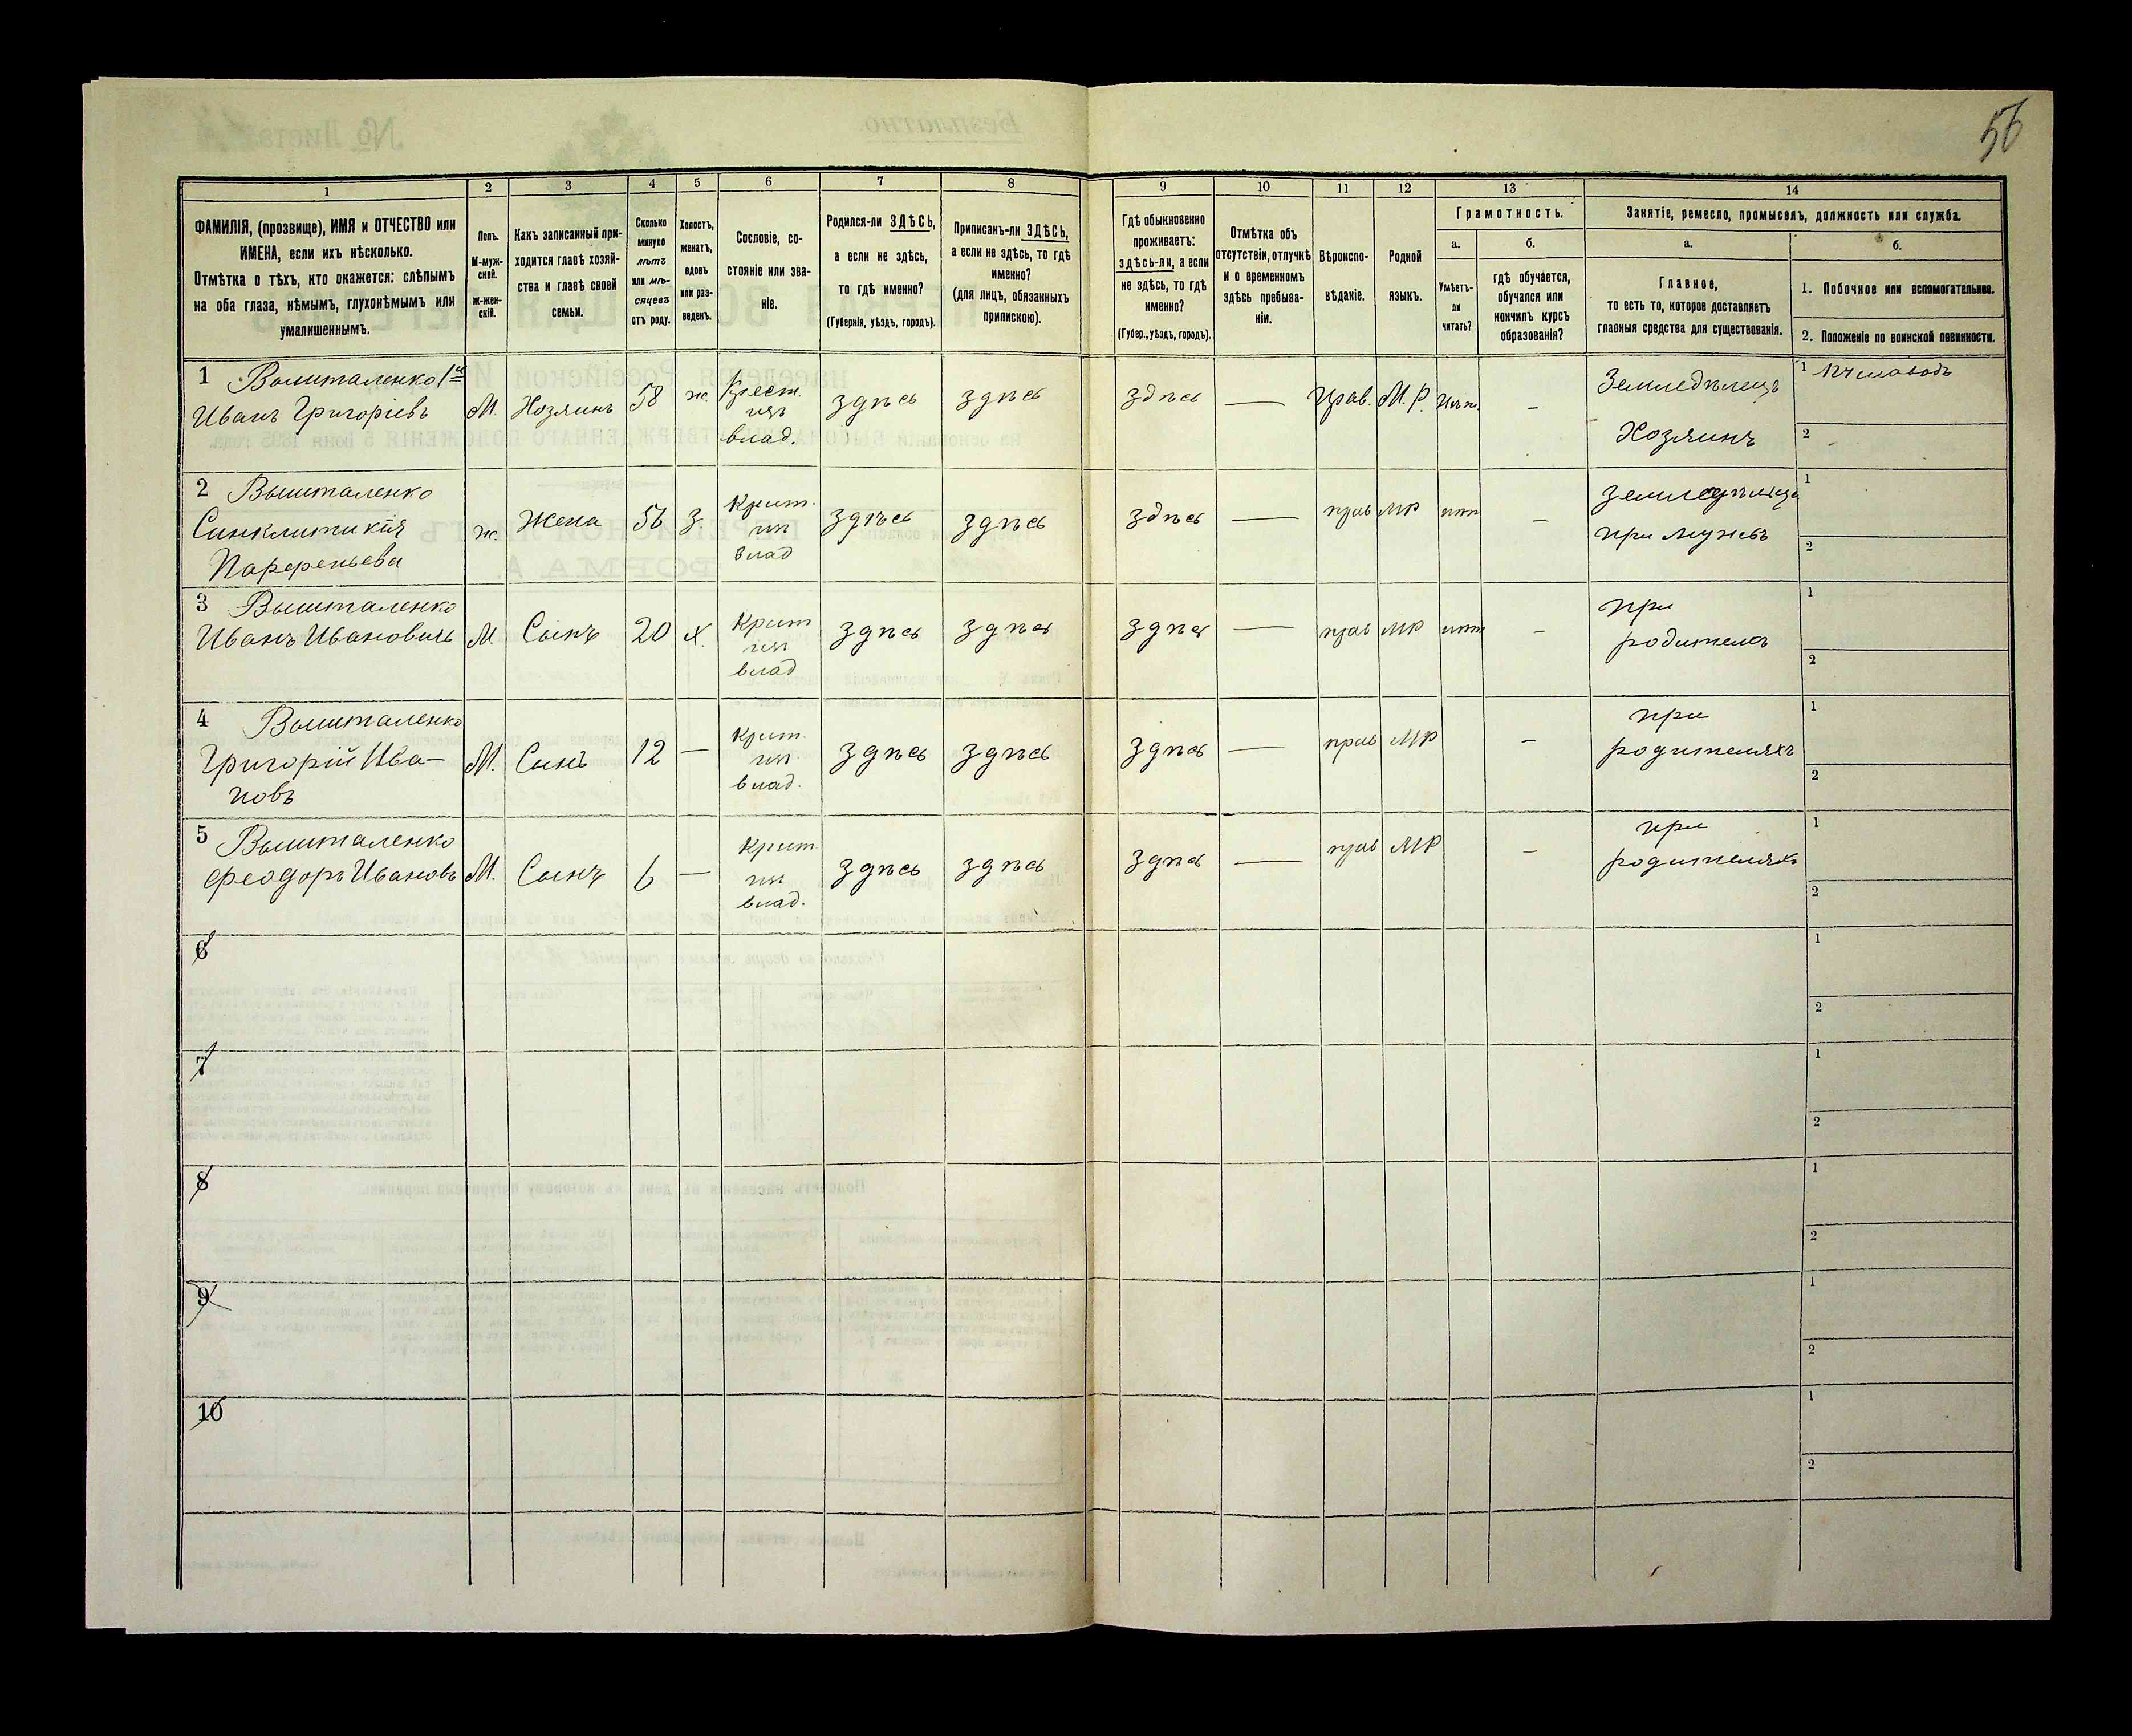 56
1
2
3
4
5
6
7
8
9
10
11
12
13
14
ФАМИЛІЯ, (прозвище), ИМЯ и ОТЧЕСТВО или
ИМЕНА, если ихъ нѣсколько.
Отмѣтка о тѣхъ, кто окажется: слѣпымъ
на оба глаза, нѣмымъ, глухонѣмымъ или
умалишеннымъ.
Полъ.
М-муж-
ской.
ж-жен-
скій.
Какъ записанный при-
ходится главѣ хозяй-
ства и главѣ своей
семьи.
Сколько
минуло
лѣтъ
или мѣ-
сяцевъ
отъ роду.
Холостъ,
женатъ,
вдовъ
или раз-
веденъ.
Сословіе, со-
стояніе или зва-
ніе.
Родился-ли ЗДѢСЬ,
а если не здѣсь,
то гдѣ именно?
(Губернія, уѣздъ, городъ).
Приписанъ-ли ЗДѢСЬ,
а если не здѣсь, то гдѣ
именно?
(для лицъ, обязанныхъ
припискою).
Гдѣ обыкновенно
проживаетъ:
здѣсь-ли, а если
не здѣсь, то гдѣ
именно?
(Губер., уѣздъ, городъ).
Отмѣтка объ
отсутствіи, отлучкѣ
и о временномъ
здѣсь пребыва-
ніи.
Вѣроиспо-
вѣданіе.
Родной
языкъ.
Грамотность.
а.
Умѣетъ-
ли
читать?
б.
гдѣ обучается,
обучался или
кончилъ курсъ
образованія?
Занятіе, ремесло, промыселъ, должность или служба.
а.
Главное,
то есть то, которое доставляетъ
главныя средства для существованія.
б.
1. Побочное или вспомогательное.
2. Положеніе по воинской повинности.
1 Вышталенко 1й
Иванъ Григоріевъ
М.
Хозяинъ
58
ж.
Крест.
изъ
влад.
здѣсь
здѣсь
здѣсь
—
Прав.
М.Р.
–
Земледѣлецъ
Хозяинъ
1 Пчеловодъ
2
2 Вышталенко
Синклитикія
Парфеньева
ж.
Жена
56
З.
Крит.
изъ
влад
здѣсь
здѣсь
здѣсь
—
прав
МР
нѣт
–
при мужѣ
1
2
3 Вышталенко
Иванъ Ивановичъ
М.
Сынъ
20
х.
Крит
изъ
влад
здѣсь
здѣсь
здѣсь
—
прав
МР
нѣт
–
при
1
2
4 Вышталенко
Григорій Ива–
новъ
М.
Сынъ
12
—
Крит.
изъ
влад.
здѣсь
здѣсь
здѣсь
—
прав
МР
–
при
родителяхъ
1
2
5 Вышталенко
Феодоръ Ивановъ
М.
Сынъ
6
—
Крит.
изъ
влад.
здѣсь
здѣсь
здѣсь
—
прав
МР
–
при
родителяхъ
1
2
6
1
2
7
1
2
8
1
2
9
1
2
10
1
2